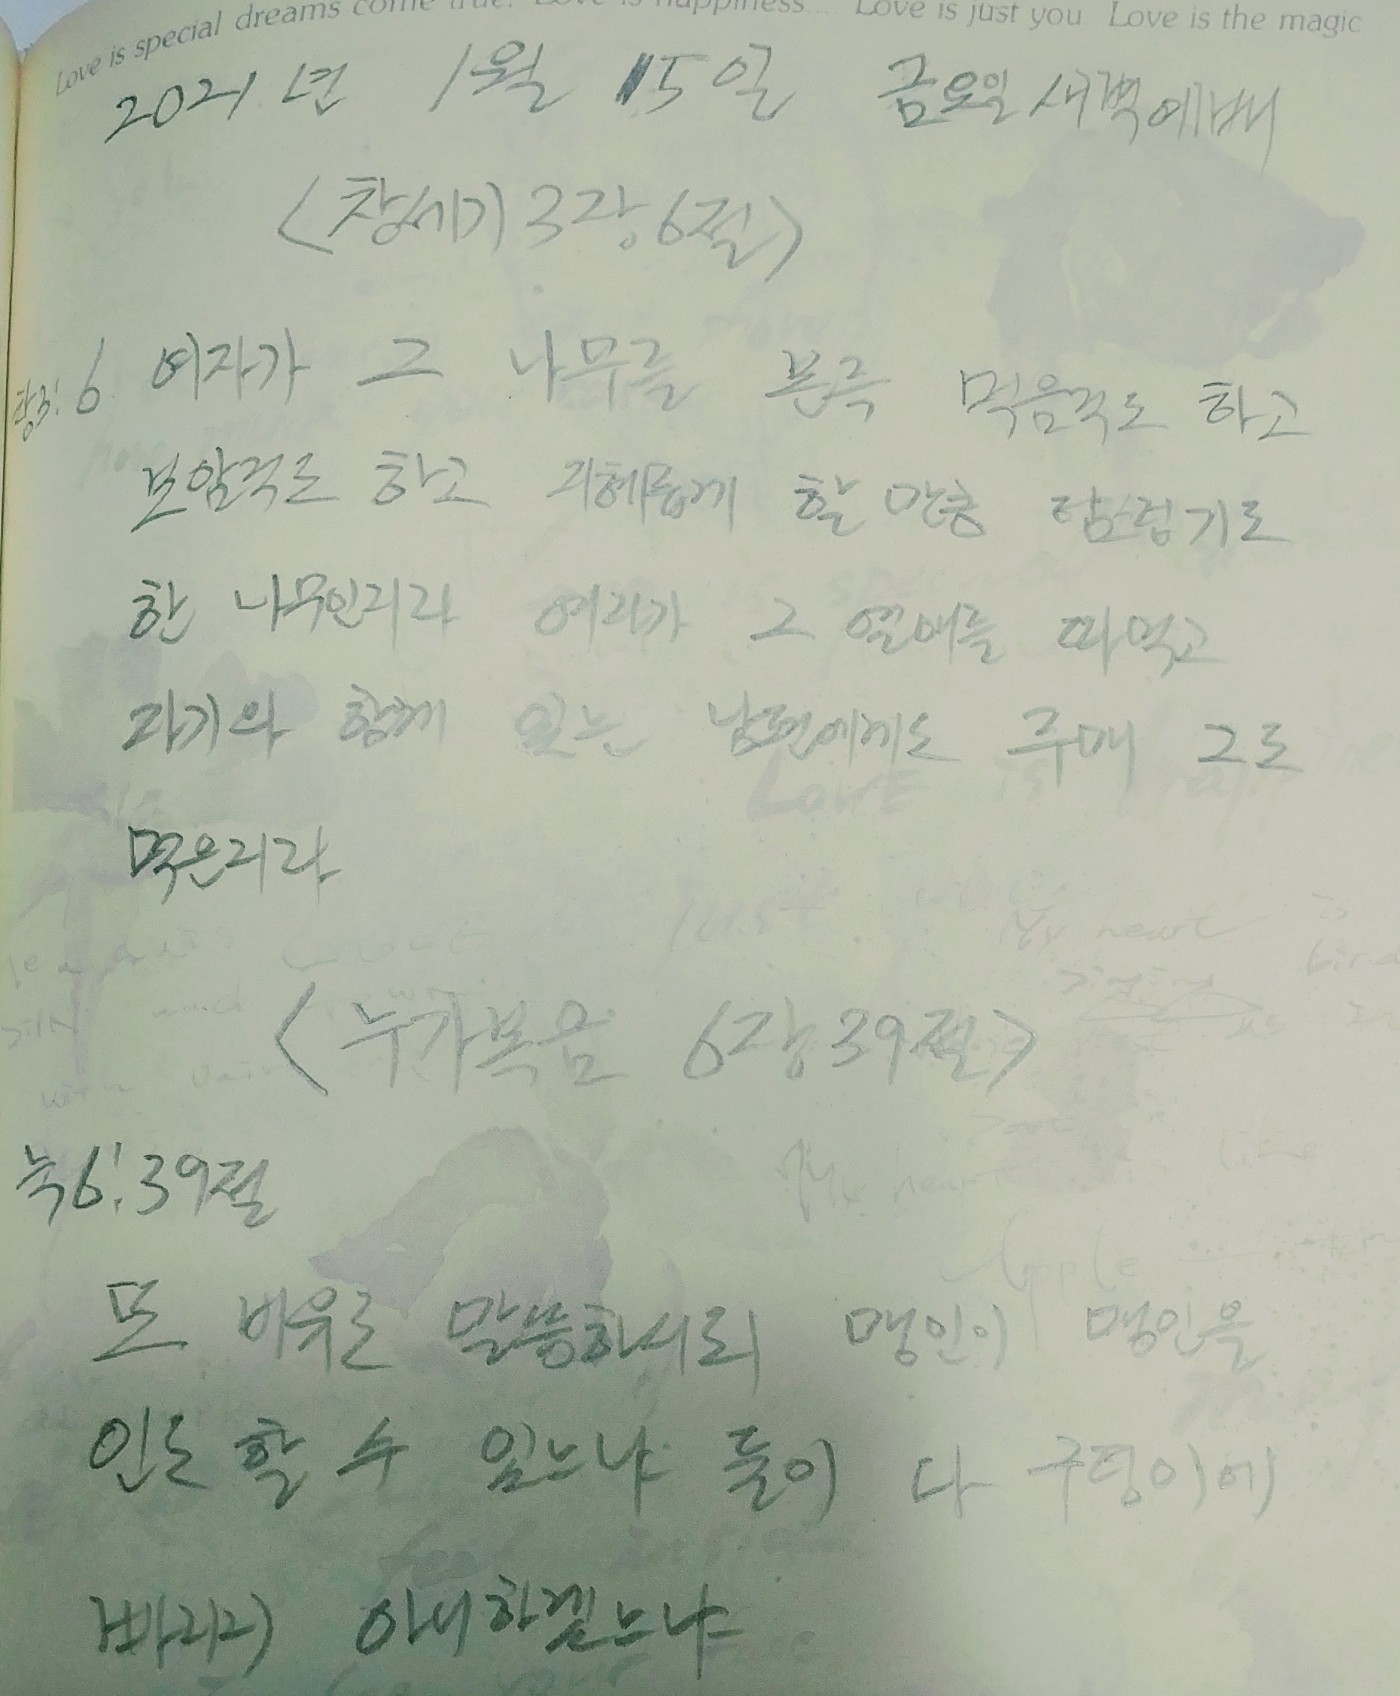 Love is special dreams come true. Love is happiness... Love is just you Love is the magic
2021년 1월 15일 금요일 새벽예배
<창세기 3장 6절>
창3:6 여자가 그 나무를 본즉 먹음직도 하고
보암직도 하고 지혜롭게 할 만큼 탐스럽기도
한 나무인지라 여자가 그 열매를 따먹고
자기와 함께 있는 남편에게도 주매 그도
먹은지라
<누가복음 6장 39절>
눅6:39절
또 비유로 말씀하시되 맹인이 맹인을
인도 할 수 있느냐 둘이 다 구덩이에
빠지지 아니하겠느냐